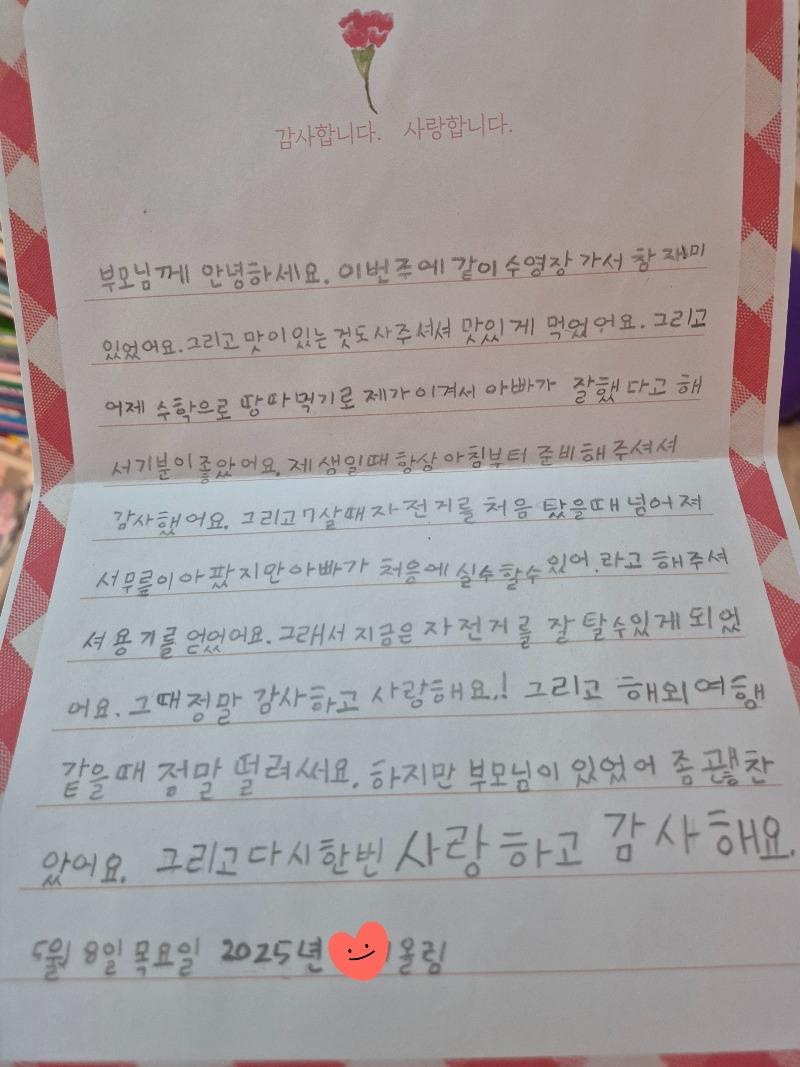 감사합니다. 사랑합니다.
부모님께 안녕하세요. 이번주에 같이 수영장 가서 참 재미
있었어요. 그리고 맛이 있는 것도 사주셔셔 맛있게 먹었어요. 그리고
어제 수학으로 땅따먹기로 제가 이겨서 아빠가 잘했다고 해
서 기분이 좋았어요. 제 생일때 항상 아침부터 준비해주셔셔
감사했어요. 그리고 7살때 자전거를 처음 탔을때 넘어져
서 무릎이 아팠지만 아빠가 처음에 실수할수 있어. 라고 해주셔
셔 용기를 얻었어요. 그래서 지금은 자전거를 잘 탈수있게 되었
어요. 그때 정말 감사하고 사랑해요.! 그리고 해외여행
갔을때 정말 떨려써요. 하지만 부모님이 있었어 좀 괜찮
았어요. 그리고 다시한번 사랑하고 감사해요.
5월 8일 목요일 2025년 올림